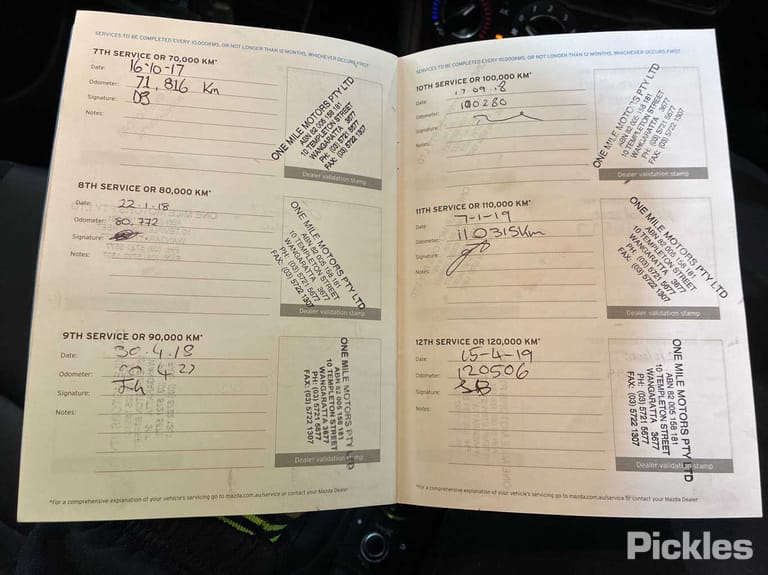 SERVICES TO BE COMPLETED EVERY 10,000KMS, OR NOT LONGER THAN 12 MONTHS, WHICHEVER OCCURS FIRST
7TH SERVICE OR 70,000 KM*
Date: 16-10-17
Odometer: 71,816 Km
Signature: DB
Notes:
ONE MILE MOTORS PTY LTD
ABN 82 005 158 181
10 TEMPLETON STREET
WANGARATTA 3677
PH: (03) 5721 5677
FAX: (03) 5722 1307
Dealer validation stamp
8TH SERVICE OR 80,000 KM*
Date: 22-1-18
Odometer: 80,772
Signature:
Notes:
ONE MILE MOTORS PTY LTD
ABN 82 005 158 181
10 TEMPLETON STREET
WANGARATTA 3677
PH: (03) 5721 5677
FAX: (03) 5722 1307
Dealer validation stamp
9TH SERVICE OR 90,000 KM*
Date: 30.4.18
Odometer:
Signature:
Notes:
ONE MILE MOTORS PTY LTD
ABN 82 005 158 181
10 TEMPLETON STREET
WANGARATTA 3677
PH: (03) 5721 5677
FAX: (03) 5722 1307
Dealer validation stamp
*For a comprehensive explanation of your vehicle's servicing go to mazda.com.au/service or contact your Mazda Dealer
SERVICES TO BE COMPLETED EVERY 10,000KMS, OR NOT LONGER THAN 12 MONTHS, WHICHEVER OCCURS FIRST
10TH SERVICE OR 100,000 KM*
Date: 17 09 18
Odometer: 100280
Signature:
Notes:
ONE MILE MOTORS PTY LTD
ABN 82 005 158 181
10 TEMPLETON STREET
WANGARATTA 3677
PH: (03) 5721 5677
FAX: (03) 5722 1307
Dealer validation stamp
11TH SERVICE OR 110,000 KM*
Date: 7-1-19
Odometer: 110315Km
Signature:
Notes:
ONE MILE MOTORS PTY LTD
ABN 82 005 158 181
10 TEMPLETON STREET
WANGARATTA 3677
PH: (03) 5721 5677
FAX: (03) 5722 1307
Dealer validation stamp
12TH SERVICE OR 120,000 KM*
Date: 15-4-19
Odometer: 120506
Signature: SB
Notes:
ONE MILE MOTORS PTY LTD
ABN 82 005 158 181
10 TEMPLETON STREET
WANGARATTA 3677
PH: (03) 5721 5677
FAX: (03) 5722 1307
Dealer validation stamp
*For a comprehensive explanation of your vehicle's servicing go to mazda.com.au/service or contact your Mazda Dealer
Pickles